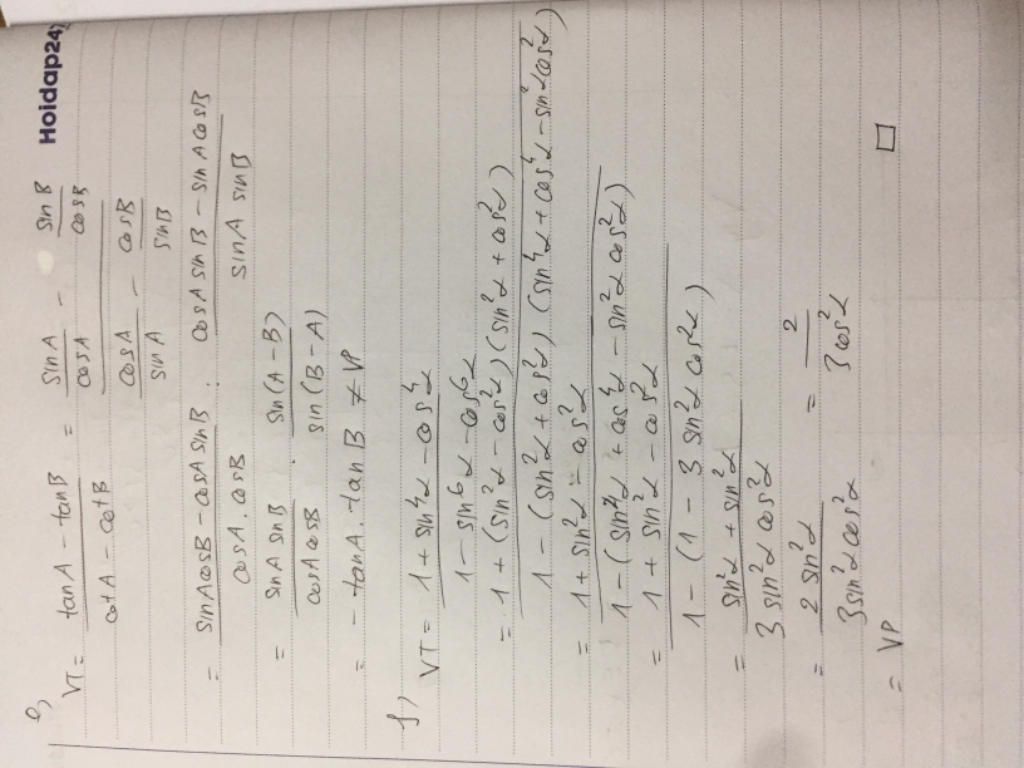 Hoidap247
e)
VT = (tanA - tanB)/(cotA - cotB) = (sinA/cosA - sinB/cosB)/(cosA/sinA - cosB/sinB)
= (sinAcosB - cosAsinB)/(cosA.cosB) : (cosAsinB - sinAcosB)/(sinAsinB)
= (sinAsinB)/(cosAcosB) . sin(A-B)/sin(B-A)
= - tanA.tanB ≠ VP
f)
VT = (1 + sin⁴α - cos⁴α)/(1 - sin⁶α - cos⁶α)
= (1 + (sin²α - cos²α)(sin²α + cos²α))/(1 - (sin²α + cos²α)(sin⁴α + cos⁴α - sin²αcos²α))
= (1 + sin²α - cos²α)/(1 - (sin⁴α + cos⁴α - sin²αcos²α))
= (1 + sin²α - cos²α)/(1 - (1 - 3sin²αcos²α))
= (sin²α + sin²α)/(3sin²αcos²α)
= (2sin²α)/(3sin²αcos²α) = 2/(3cos²α)
= VP □